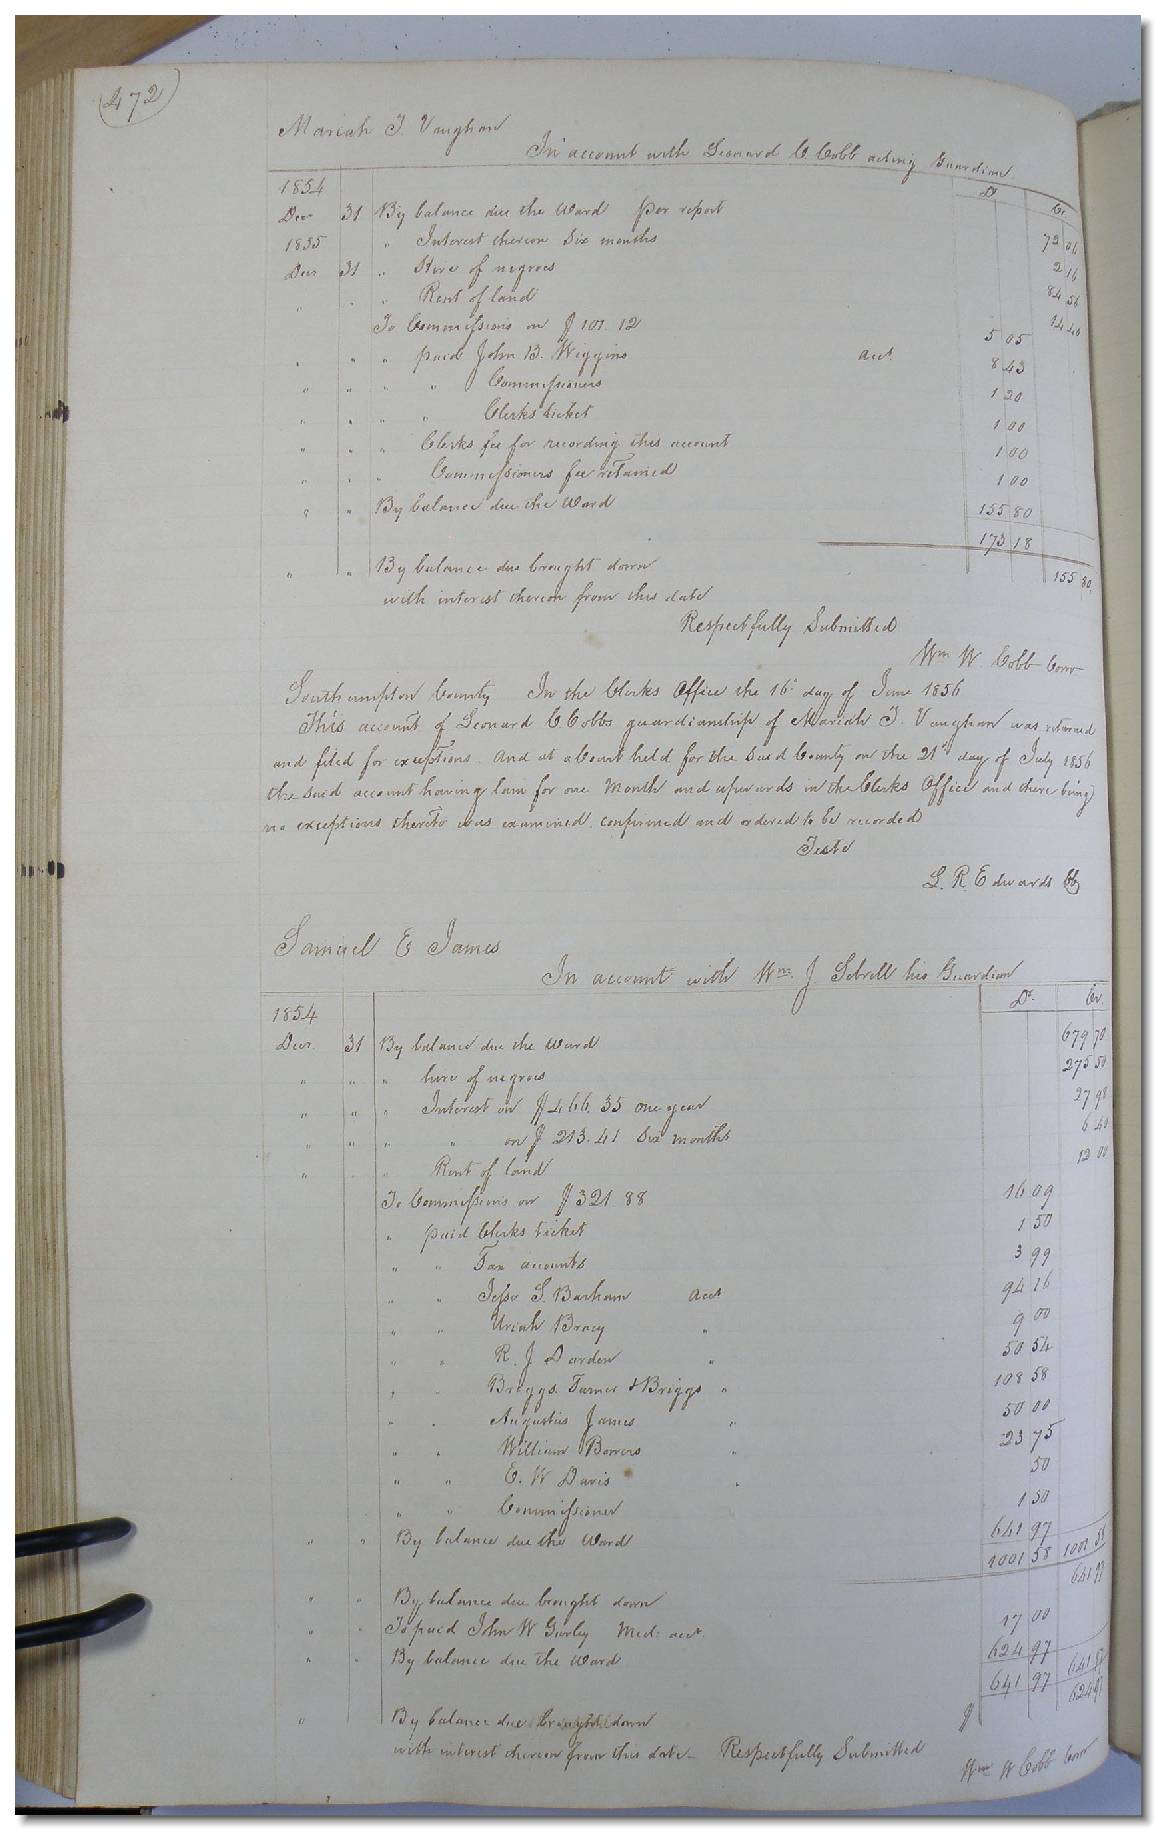 472
Mariah T Vaughan
In account with Leonard C Cobb acting Guardian
Dr Cr.
1854
Decr 31 By balance due the Ward per report 72 06
1855 " Interest thereon Six months 2 16
Decr 31 " Hire of negroes 84 56
" " " Rent of land 14 40
To Commissions on $ 101. 12 5 05
" " " paid John B. Wiggins acct. 8 43
" " " " Commissioners 1 20
" " " " Clerks ticket 1 00
" " " Clerks fee for recording this account 1 00
" " " Commissioners fee retained 1 00
" " By balance due the Ward 155 80
173 18
" " By balance due brought down 155 80
with interest thereon from this date
Respectfully Submitted
Wm W. Cobb Comr
Southampton County In the Clerks Office the 16th day of June 1856
This account of Leonard C Cobbs guardianship of Mariah T. Vaughan was returned
and filed for exceptions. And at a Court held for the Said County on the 21st day of July 1856
the Said account having lain for one Month and upwards in the Clerks Office and there being
no exceptions thereto was examined confirmed and ordered to be recorded
Teste
L. R. Edwards
Samuel E James
In account with Wm. J. Sebrell his Guardian
Dr. Cr.
1854
Decr. 31 By balance due the Ward 679 70
" " " hire of negroes 275 50
" " " Interest on $ 466. 35 one year 27 98
" " " " on $ 213. 41 Six months 6 40
" " " Rent of land 12 00
To Commissions on $ 321 88 16 09
" paid Clerks ticket 1 50
" " Tax accounts 3 99
" " Jesse S. Barham acct 94 16
" " Uriah Bracy " 9 00
" " R. J Darden " 50 54
" " Briggs Turner & Briggs " 108 58
" " Augustus James " 50 00
" " William Bowers " 23 75
" " E. W Davis " 50
" " Commissioner 1 50
" " By balance due the Ward 641 97
1001 58 1001 58
" " By balance due brought down 641 97
" " To paid John W Gurley Med: acct. 17 00
" " By balance due the Ward 624 97
641 97 641 97
" By balance due brought down $ 624 97
with interest thereon from this date Respectfully Submitted
Wm W Cobb Comr